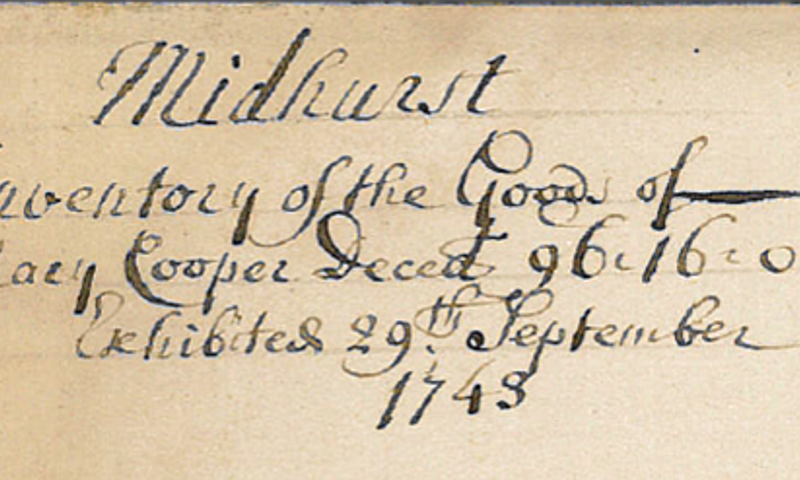 Midhurst
nventory of the Goods of
ary Cooper Deced 96:16:0
Exhibited 29th September
1743